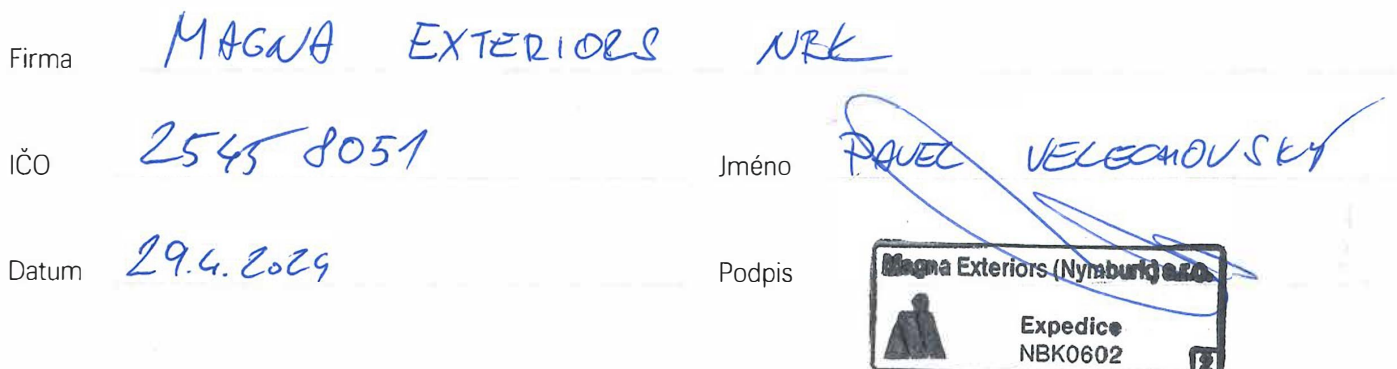 Firma MAGNA EXTERIORS NBK
IČO 2545 8051 Jméno PAVEL VELECHOVSKÝ
Datum 29.4.2024 Podpis
Magna Exteriors (Nymburk) s.r.o.
Expedice
NBK0602
2